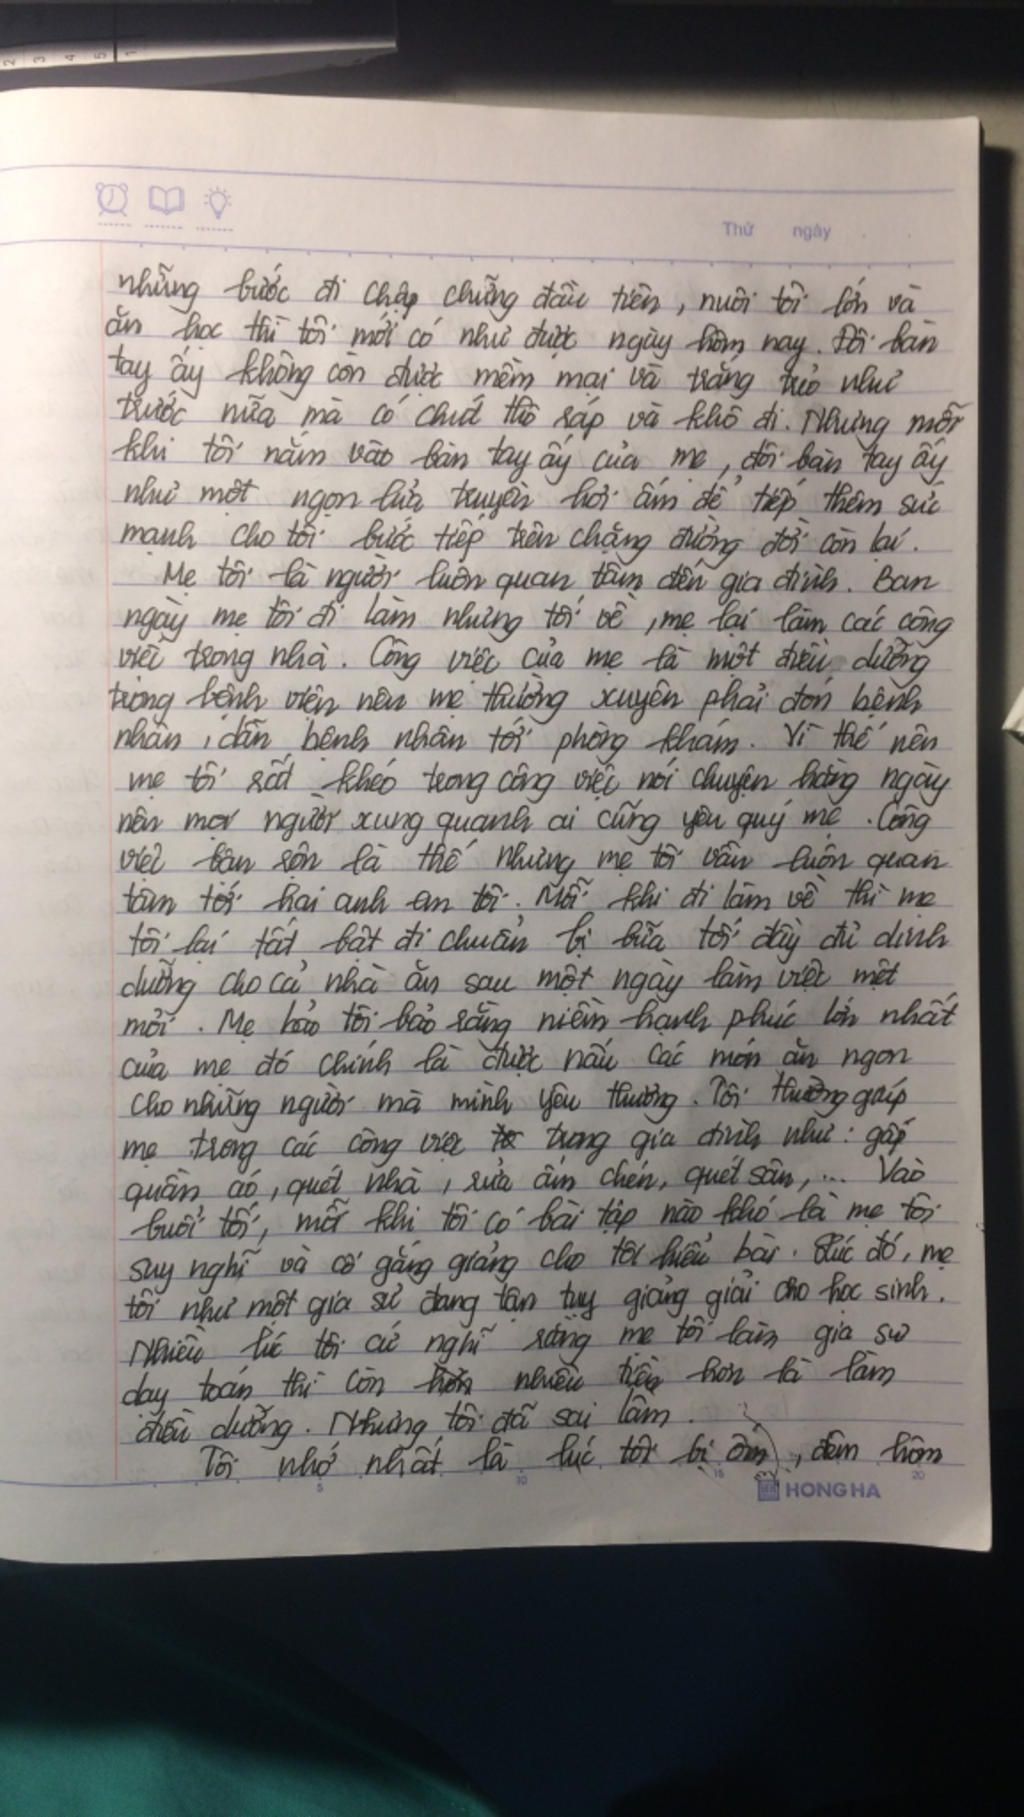 2 3 4 5 1
Thứ ngày
những bước đi chập chững đầu tiên, nuôi tôi lớn và
ăn học thì tôi mới có như được ngày hôm nay. Đôi bàn
tay ấy không còn được mềm mại và trắng trẻo như
trước nữa mà có chút thô ráp và khô đi. Nhưng mỗi
khi tôi nắm vào bàn tay ấy của mẹ, đôi bàn tay ấy
như một ngọn lửa truyền hơi ấm để tiếp thêm sức
mạnh cho tôi bước tiếp trên chặng đường đời còn lại.
Mẹ tôi là người luôn quan tâm đến gia đình. Ban
ngày mẹ tôi đi làm nhưng tối về, mẹ lại làm các công
việc trong nhà. Công việc của mẹ là một điều dưỡng
trong bệnh viện nên mẹ thường xuyên phải đón bệnh
nhân, dẫn bệnh nhân tới phòng khám. Vì thế nên
mẹ tôi rất khéo trong công việc nói chuyện hàng ngày
nên mọi người xung quanh ai cũng yêu quý mẹ. Công
việc bận rộn là thế nhưng mẹ tôi vẫn luôn quan
tâm tới hai anh em tôi. Mỗi khi đi làm về thì mẹ
tôi lại tất bật đi chuẩn bị bữa tối đầy đủ dinh
dưỡng cho cả nhà ăn sau một ngày làm việc mệt
mỏi. Mẹ tôi bảo rằng niềm hạnh phúc lớn nhất
của mẹ đó chính là được nấu các món ăn ngon
cho những người mà mình yêu thương. Tôi thường giúp
mẹ trong các công việc trong gia đình như: gấp
quần áo, quét nhà, rửa ấm chén, quét sân, ... Vào
buổi tối, mỗi khi tôi có bài tập nào khó là mẹ tôi
suy nghĩ và cố gắng giảng cho tôi hiểu bài. Lúc đó, mẹ
tôi như một gia sư đang tận tụy giảng giải cho học sinh.
Nhiều lúc tôi cứ nghĩ rằng mẹ tôi làm gia sư
dạy toán thì còn nhiều tiền hơn là làm
điều dưỡng. Nhưng tôi đã sai lầm.
Tôi nhớ nhất là lúc tôi bị ốm, đêm hôm
5 10 15 20
HONG HA